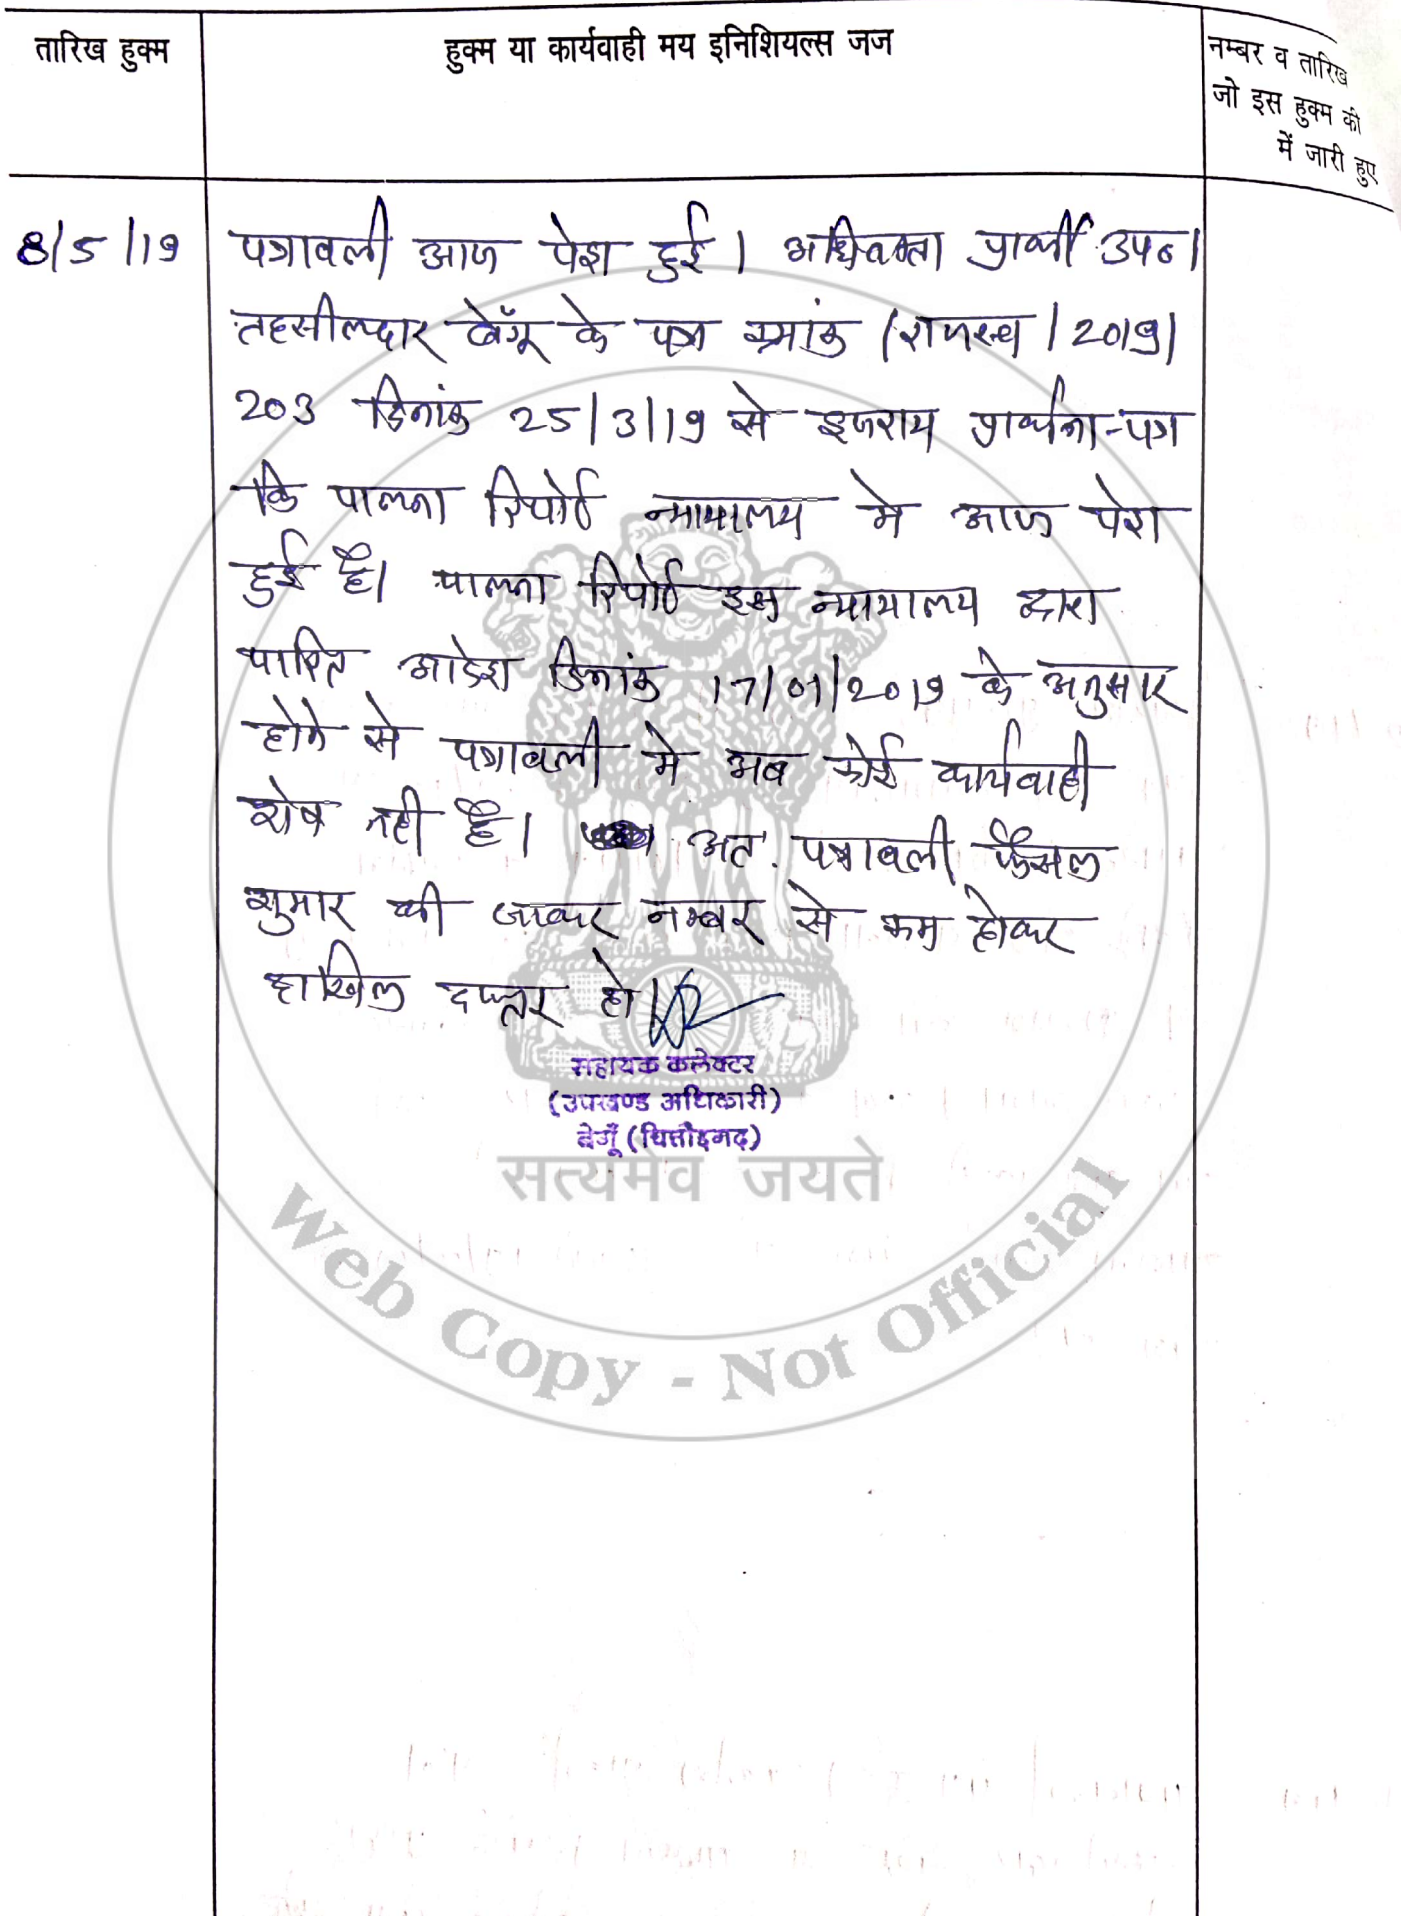 तारिख हुक्म
हुक्म या कार्यवाही मय इनिशियल्स जज
नम्बर व तारिख
जो इस हुक्म की
में जारी हुए
8/5/19
पत्रावली आज पेश हुई। अधिवक्ता प्रार्थी उप०।
तहसीलदार बेगूँ के पत्र क्रमांक /राजस्व/2019/
203 दिनांक 25/3/19 से इजराय प्रार्थना-पत्र
कि पालना रिपोर्ट न्यायालय मे आज पेश
हुई है। पालना रिपोर्ट इस न्यायालय द्वारा
पारित आदेश दिनांक 17/01/2019 के अनुसार
होने से पत्रावली मे अब कोई कार्यवाही
शेष नही है। अत. पत्रावली फैसल
शुमार की जाकर नम्बर से कम होकर
दाखिल दफ्तर हो।
सहायक कलेक्टर
(उपखण्ड अधिकारी)
बेगूँ (चित्तौड़गढ़)
सत्यमेव जयते
Web Copy - Not Official